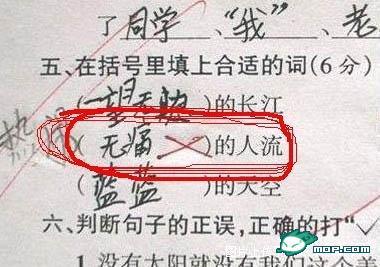 了同学、“我”、老
五、在括号里填上合适的词(6分)
(一望无)的长江
(无痛)的人流
(蓝蓝)的天空
六、判断句子的正误,正确的打“√
1.没有太阳就没有我们这个美
MOP.com